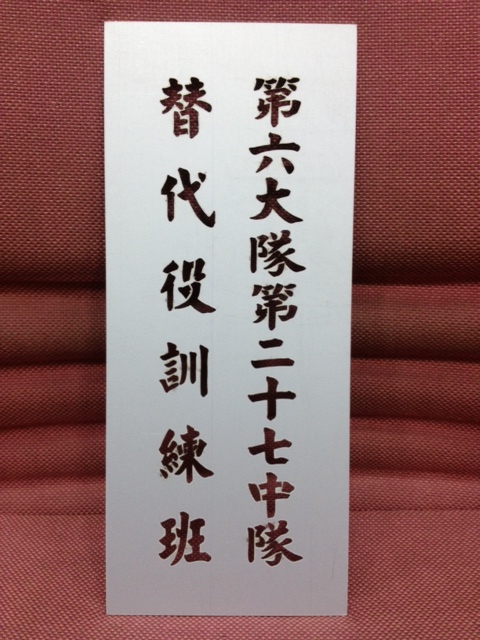 第六大隊第二十七中隊
替代役訓練班